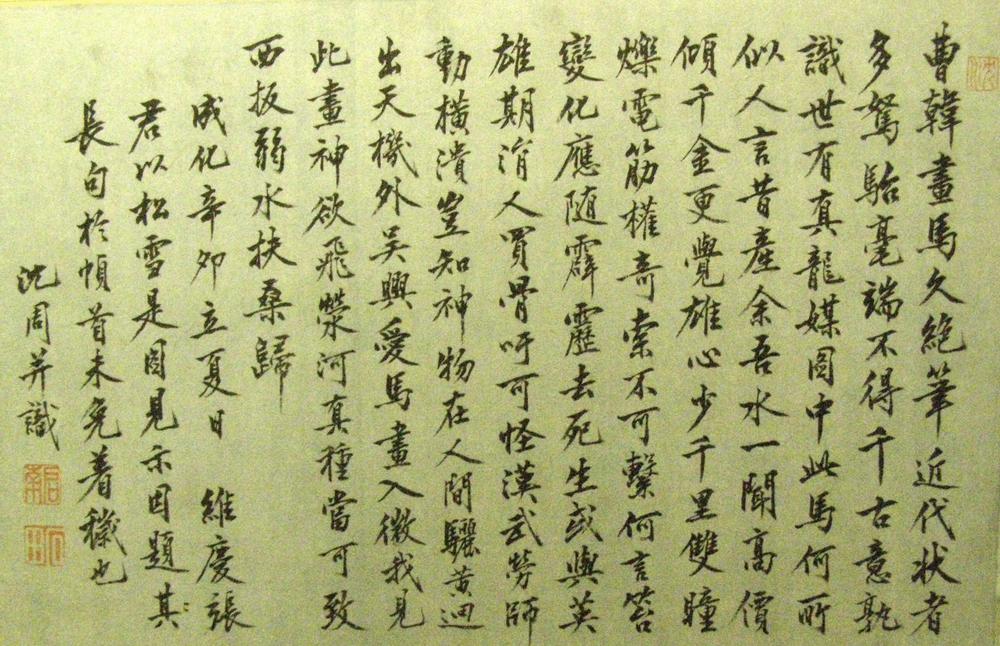 曹韓畫馬久絕筆近代狀者
多駑駘毫端不得千古意孰
識世有真龍媒圖中此馬何所
似人言昔產余吾水一聞高價
傾千金更覺雄心少千里雙瞳
爍電筋權奇索不可繫何言笞
變化應隨霹靂去死生或與英
雄期涓人買骨吁可怪漢武勞師
動橫潰豈知神物在人間驪黃迥
出天機外吳興愛馬畫入微我見
此畫神欲飛滎河真種當可致
西扳弱水扶桑歸
成化辛卯立夏日 維慶張
君以松雪是圖見示因題其
長句於幀首未免着穢也
沈周并識